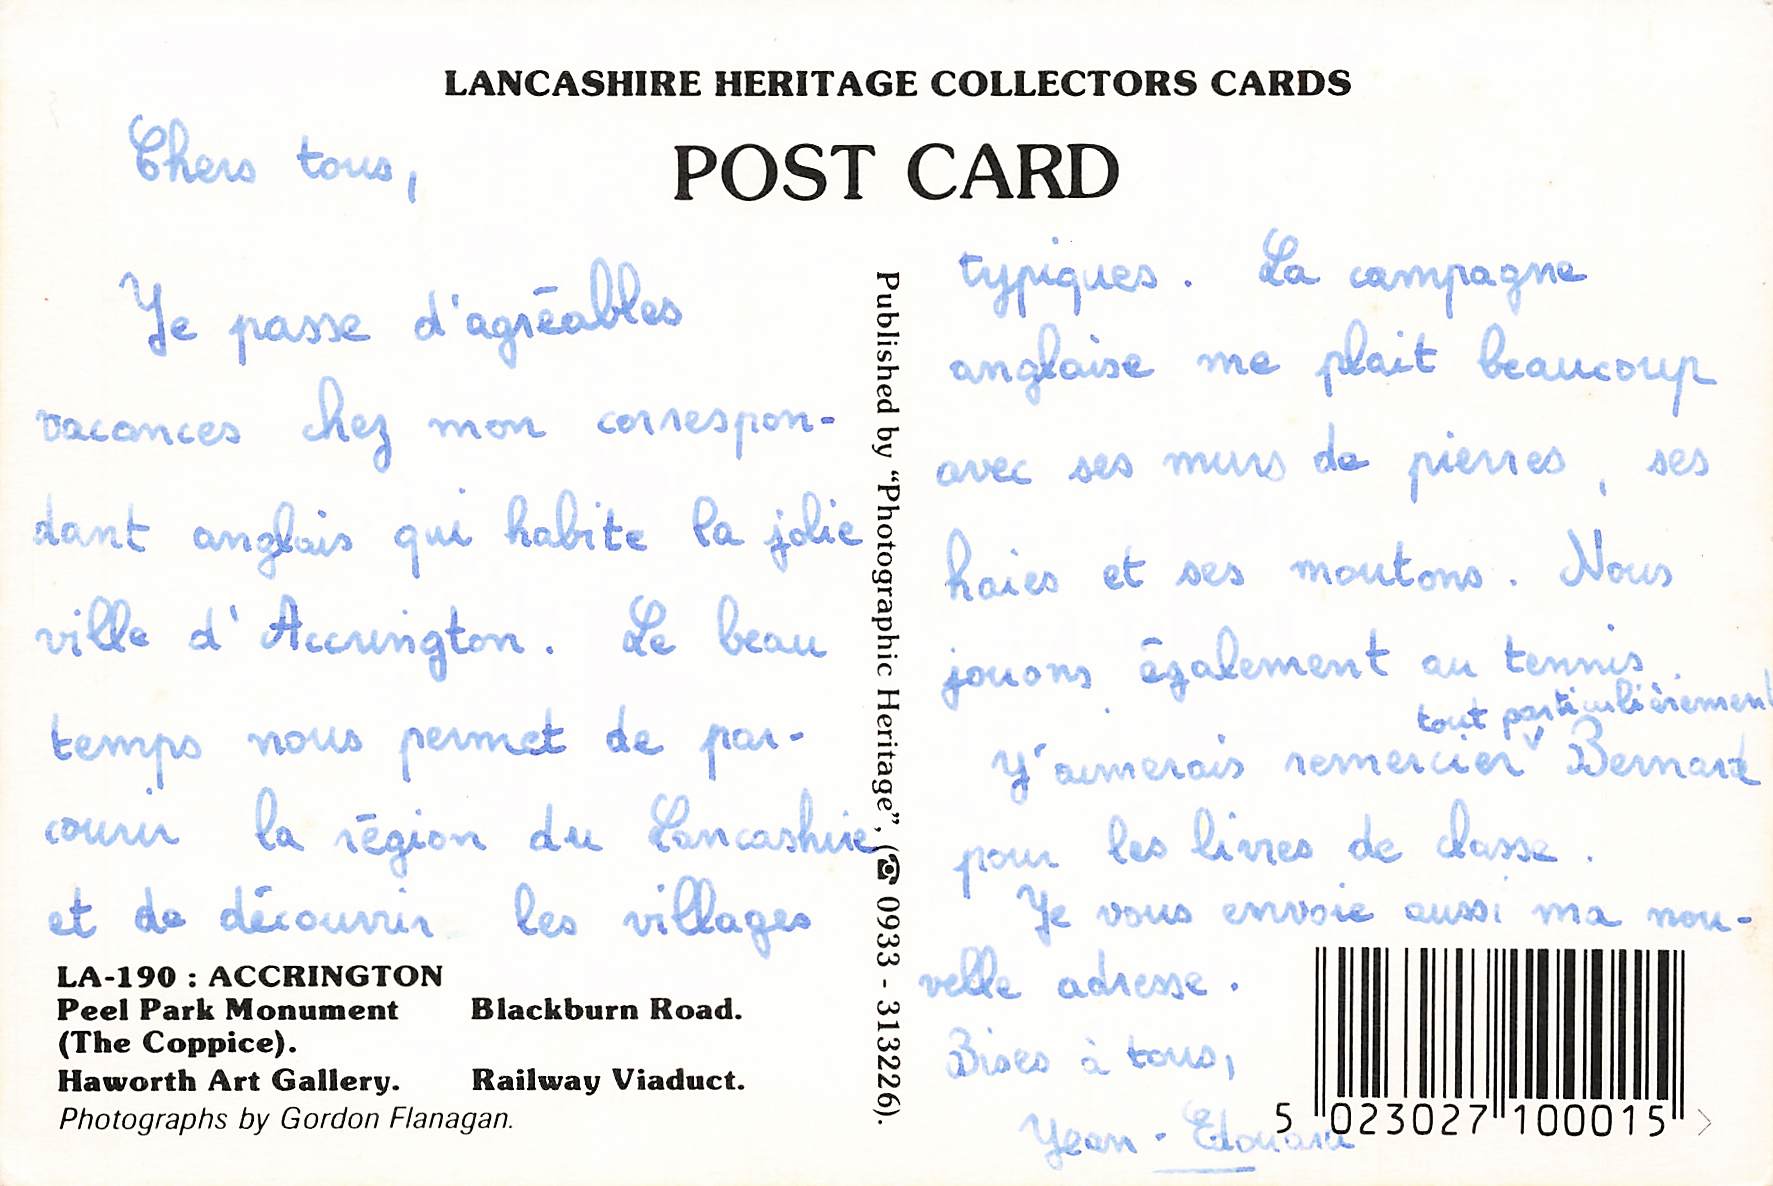 LANCASHIRE HERITAGE COLLECTORS CARDS
POST CARD
Chers tous,
Je passe d'agréables
vacances chez mon correspon-
dant anglais qui habite la jolie
ville d'Accrington. Le beau
temps nous permet de par-
courir la région du Lancashire
et de découvrir les villages
typiques. La campagne
anglaise me plait beaucoup
avec ses murs de pierres, ses
haies et ses moutons. Nous
jouons également au tennis.
tout particulièrement
J'aimerais remercier Bernard
pour les livres de classe.
Je vous envoie aussi ma nou-
velle adresse.
Bises à tous,
Jean-Edouard
Published by "Photographic Heritage", (☎ 0933 - 313226).
LA-190 : ACCRINGTON
Peel Park Monument Blackburn Road.
(The Coppice).
Haworth Art Gallery. Railway Viaduct.
Photographs by Gordon Flanagan.
5 023027 100015 >